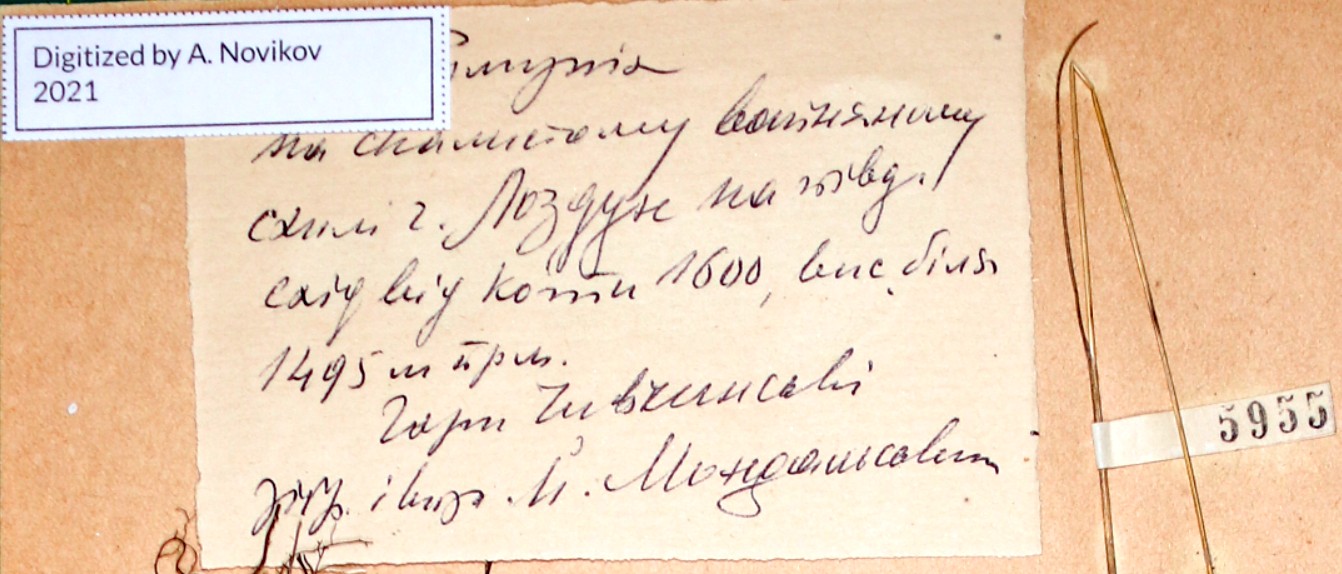 Digitized by A. Novikov
2021
на скалистому вапняному
схилі г. Лоздун на півд.
схід від коти 1600, вис. біля
1495 м нрм.
Гори Чивчинські
збір. і визн.
5955